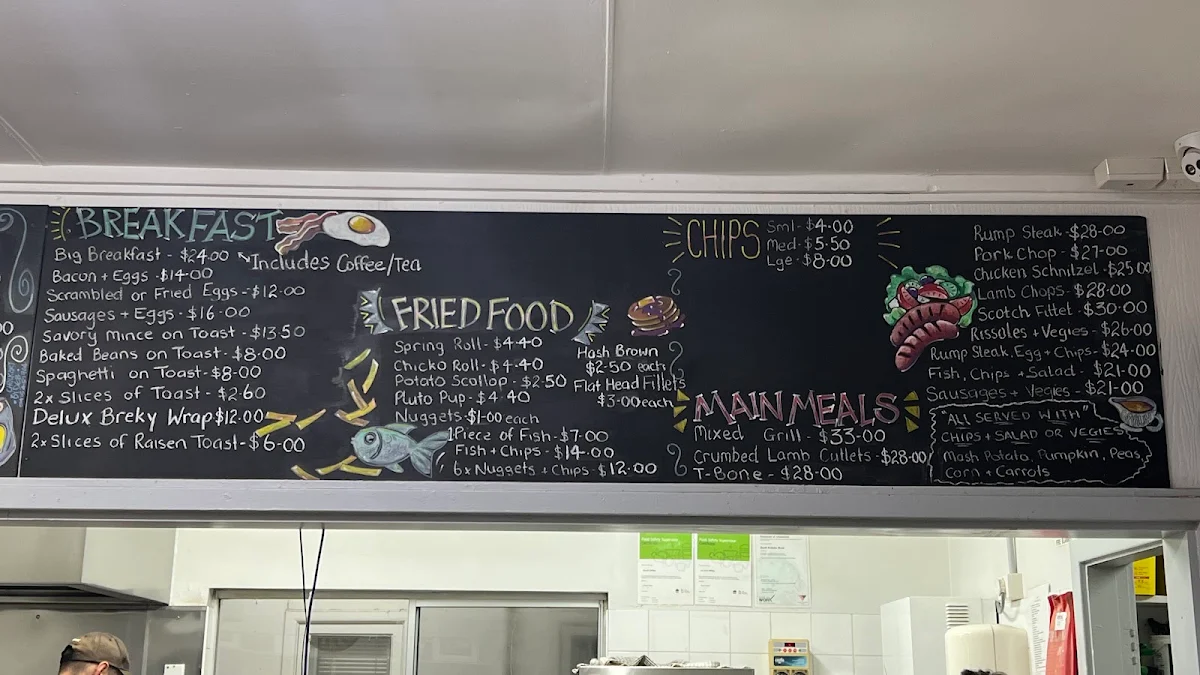 BREAKFAST
Big Breakfast - $24.00
Includes Coffee/Tea
Bacon + Eggs - $14.00
Scrambled or Fried Eggs - $12.00
Sausages + Eggs - $16.00
Savory Mince on Toast - $13.50
Baked Beans on Toast - $8.00
Spaghetti on Toast - $8.00
2x Slices of Toast - $2.60
Delux Breky Wrap $12.00
2x Slices of Raisen Toast - $6.00
FRIED FOOD
Spring Roll - $4.40
Chicko Roll - $4.40
Potato Scollop - $2.50
Pluto Pup - $4.40
Nuggets - $1.00 each
1 Piece of Fish - $7.00
Fish + Chips - $14.00
6x Nuggets + Chips - $12.00
Hash Brown
$2.50 each
Flat Head Fillets
$3.00 each
CHIPS
Sml - $4.00
Med - $5.50
Lge - $8.00
MAIN MEALS
Mixed Grill - $33.00
Crumbed Lamb Cutlets - $28.00
T-Bone - $28.00
Rump Steak - $28.00
Pork Chop - $27.00
Chicken Schnitzel - $25.00
Lamb Chops - $28.00
Scotch Fillet - $30.00
Rissoles + Vegies - $26.00
Rump Steak, Egg + Chips - $24.00
Fish, Chips + Salad - $21.00
Sausages + Vegies - $21.00
"ALL SERVED WITH"
CHIPS + SALAD OR VEGIES
Mash Potato, Pumpkin, Peas,
Corn + Carrots